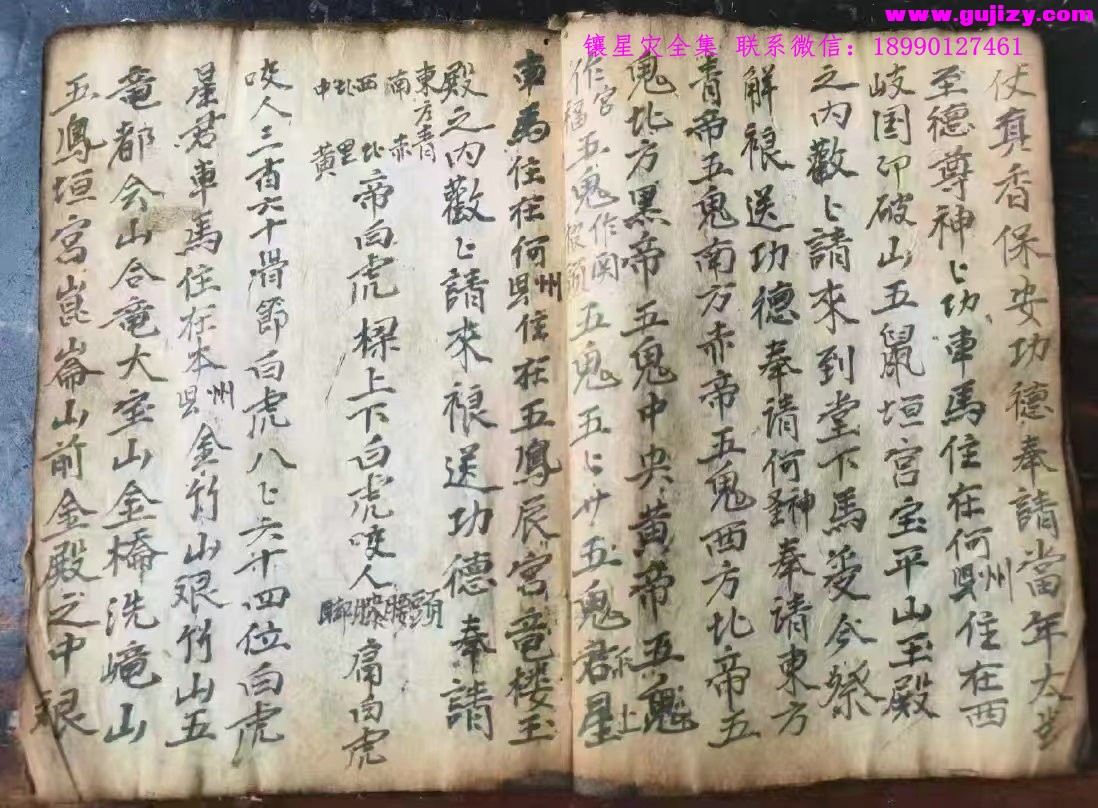 www.gujizy.com
镶星灾全集 联系微信：18990127461
仗真香保安功德奉請當年太岁
至德尊神〻功車馬住在何州県住在西
岐国卯破山五鼠垣宮宝平山玉殿
之内歡〻請來到堂下馬受今祭
解禳送功德奉請何神圣奉請東方
青帝五鬼南方赤帝五鬼西方北帝五
鬼北方黑帝五鬼中央黄帝五鬼
作宮作福五鬼作関五鬼五〻廿五鬼君星
車馬住在何州県住在五鳳辰宮竜楼玉
殿之内歡〻請來禳送功德奉請
東方青南赤西北中黄
帝白虎樑上下白虎咬人頭腰膝脚白虎
咬人三百六十滑節白虎八〻六十四位白虎
星君車馬住在本州県金竹山艮竹山五
竜都会山合竜大宝山金橋洗山
五鳳垣宮崑崙山前金殿之中艮